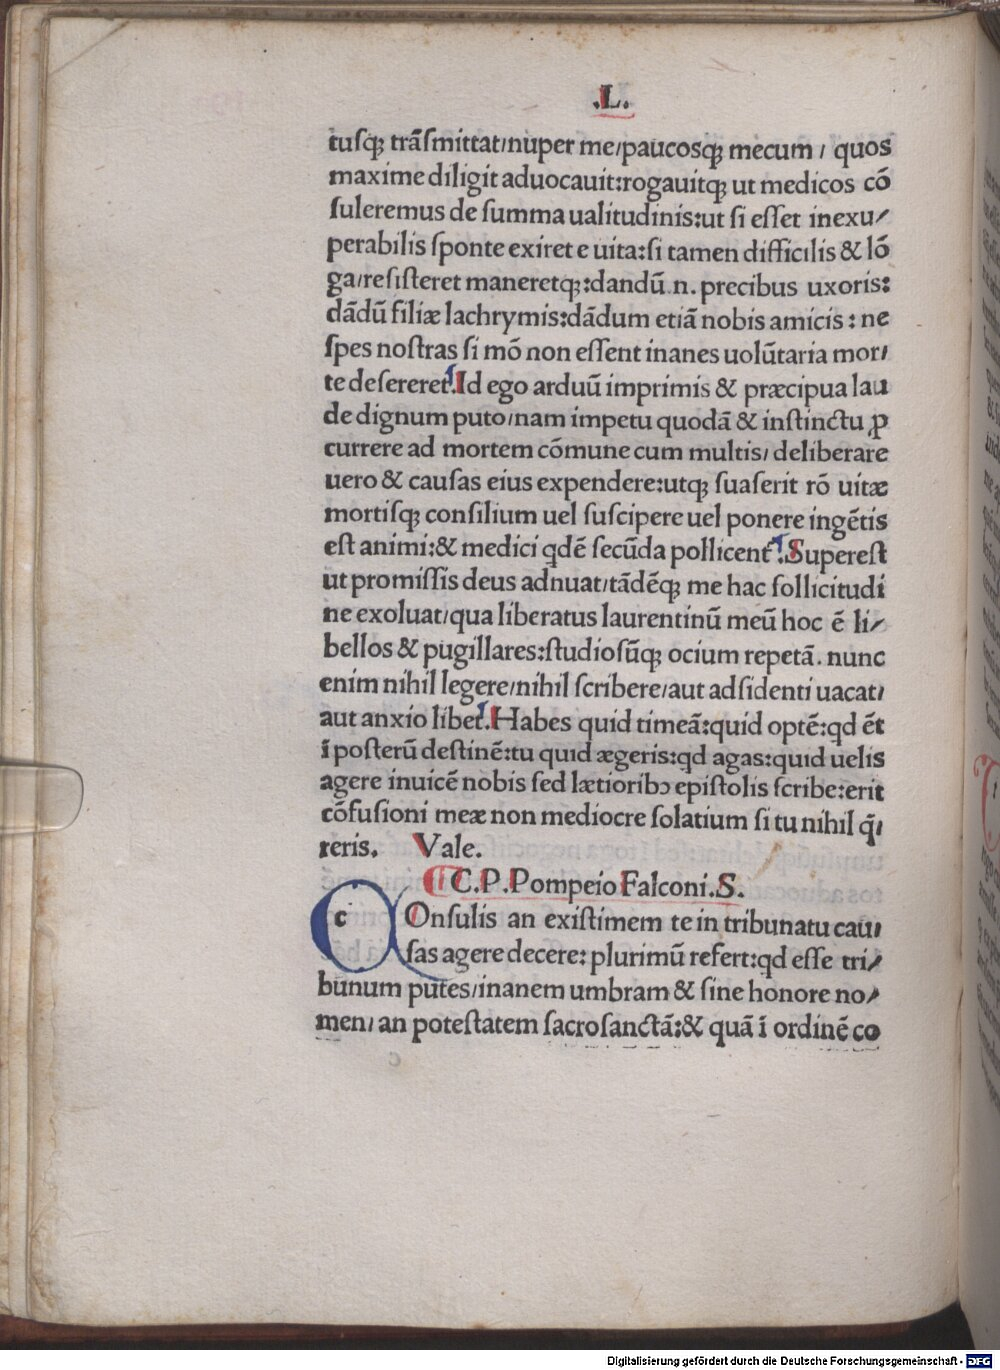 .L.
tuſqꝫ trãſmittat/nuper me/paucosqꝫ mecum / quos
maxime diligit aduocauit:rogauitqꝫ ut medicos cõ
ſuleremus de ſumma ualitudinis:ut ſi eſſet inexu/
perabilis ſponte exiret e uita:ſi tamen difficilis & lõ
ga/reſiſteret maneretqꝫ:dandũ .n. precibus uxoris:
dãdũ filiæ lachrymis:dãdum etiã nobis amicis : ne
ſpes noſtras ſi mõ non eſſent inanes uolũtaria mor/
te deſereret.Id ego arduũ imprimis & præcipua lau
de dignum puto/nam impetu quodã & inſtinctu ꝓ
currere ad mortem cõmune cum multis/ deliberare
uero & cauſas eius expendere:utqꝫ ſuaſerit rõ uitæ
mortiſqꝫ conſilium uel ſuſcipere uel ponere ingẽtis
eſt animi:& medici qdẽ ſecũda pollicent᷑.Supereſt
ut promiſſis deus adnuat/tãdẽqꝫ me hac ſollicitudi
ne exoluat/qua liberatus laurentinũ meũ hoc ẽ li/
bellos & pugillares:ſtudioſũqꝫ ocium repetã. nunc
enim nihil legere/nihil ſcribere/aut adſidenti uacat/
aut anxio libet.Habes quid timeã:quid optẽ:qd ẽt
ĩ poſterũ deſtinẽ:tu quid ægeris:qd agas:quid uelis
agere inuicẽ nobis ſed lætioribꝫ epiſtolis ſcribe:erit
cõfuſioni meæ non mediocre ſolatium ſi tu nihil q̃/
reris. Vale.
C.P.Pompeio Falconi.S.
c Onſulis an exiſtimem te in tribunatu cau/
ſas agere decere: plurimũ refert:qd eſſe tri/
bunum putes/inanem umbram & ſine honore no/
men/ an poteſtatem ſacroſanctã:& quã ĩ ordinẽ co
Digitalisierung gefördert durch die Deutsche Forschungsgemeinschaft - DFG